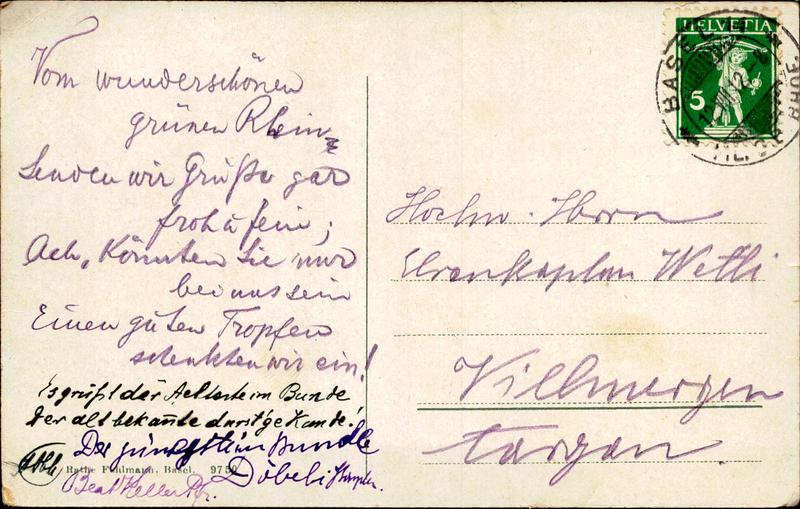 Vom wunderschönen
grünen Rhein
Senden wir Grüße gar
froh & fein;
Ach, Könnten Sie nur
bei uns sein
Einen guten Tropfen
schenkten wir ein!
Es grüßt der Aelteste im Bunde
Der altbekannte durst'ge Kunde!
Der jüngste im Bunde
Döbeli
Beat Keller Pfr.
Rathe Fehlmann, Basel. 9750
HELVETIA
5
BASEL
Hochw. Herrn
Ehrenkaplan Wettli
Villmergen
Aargau.